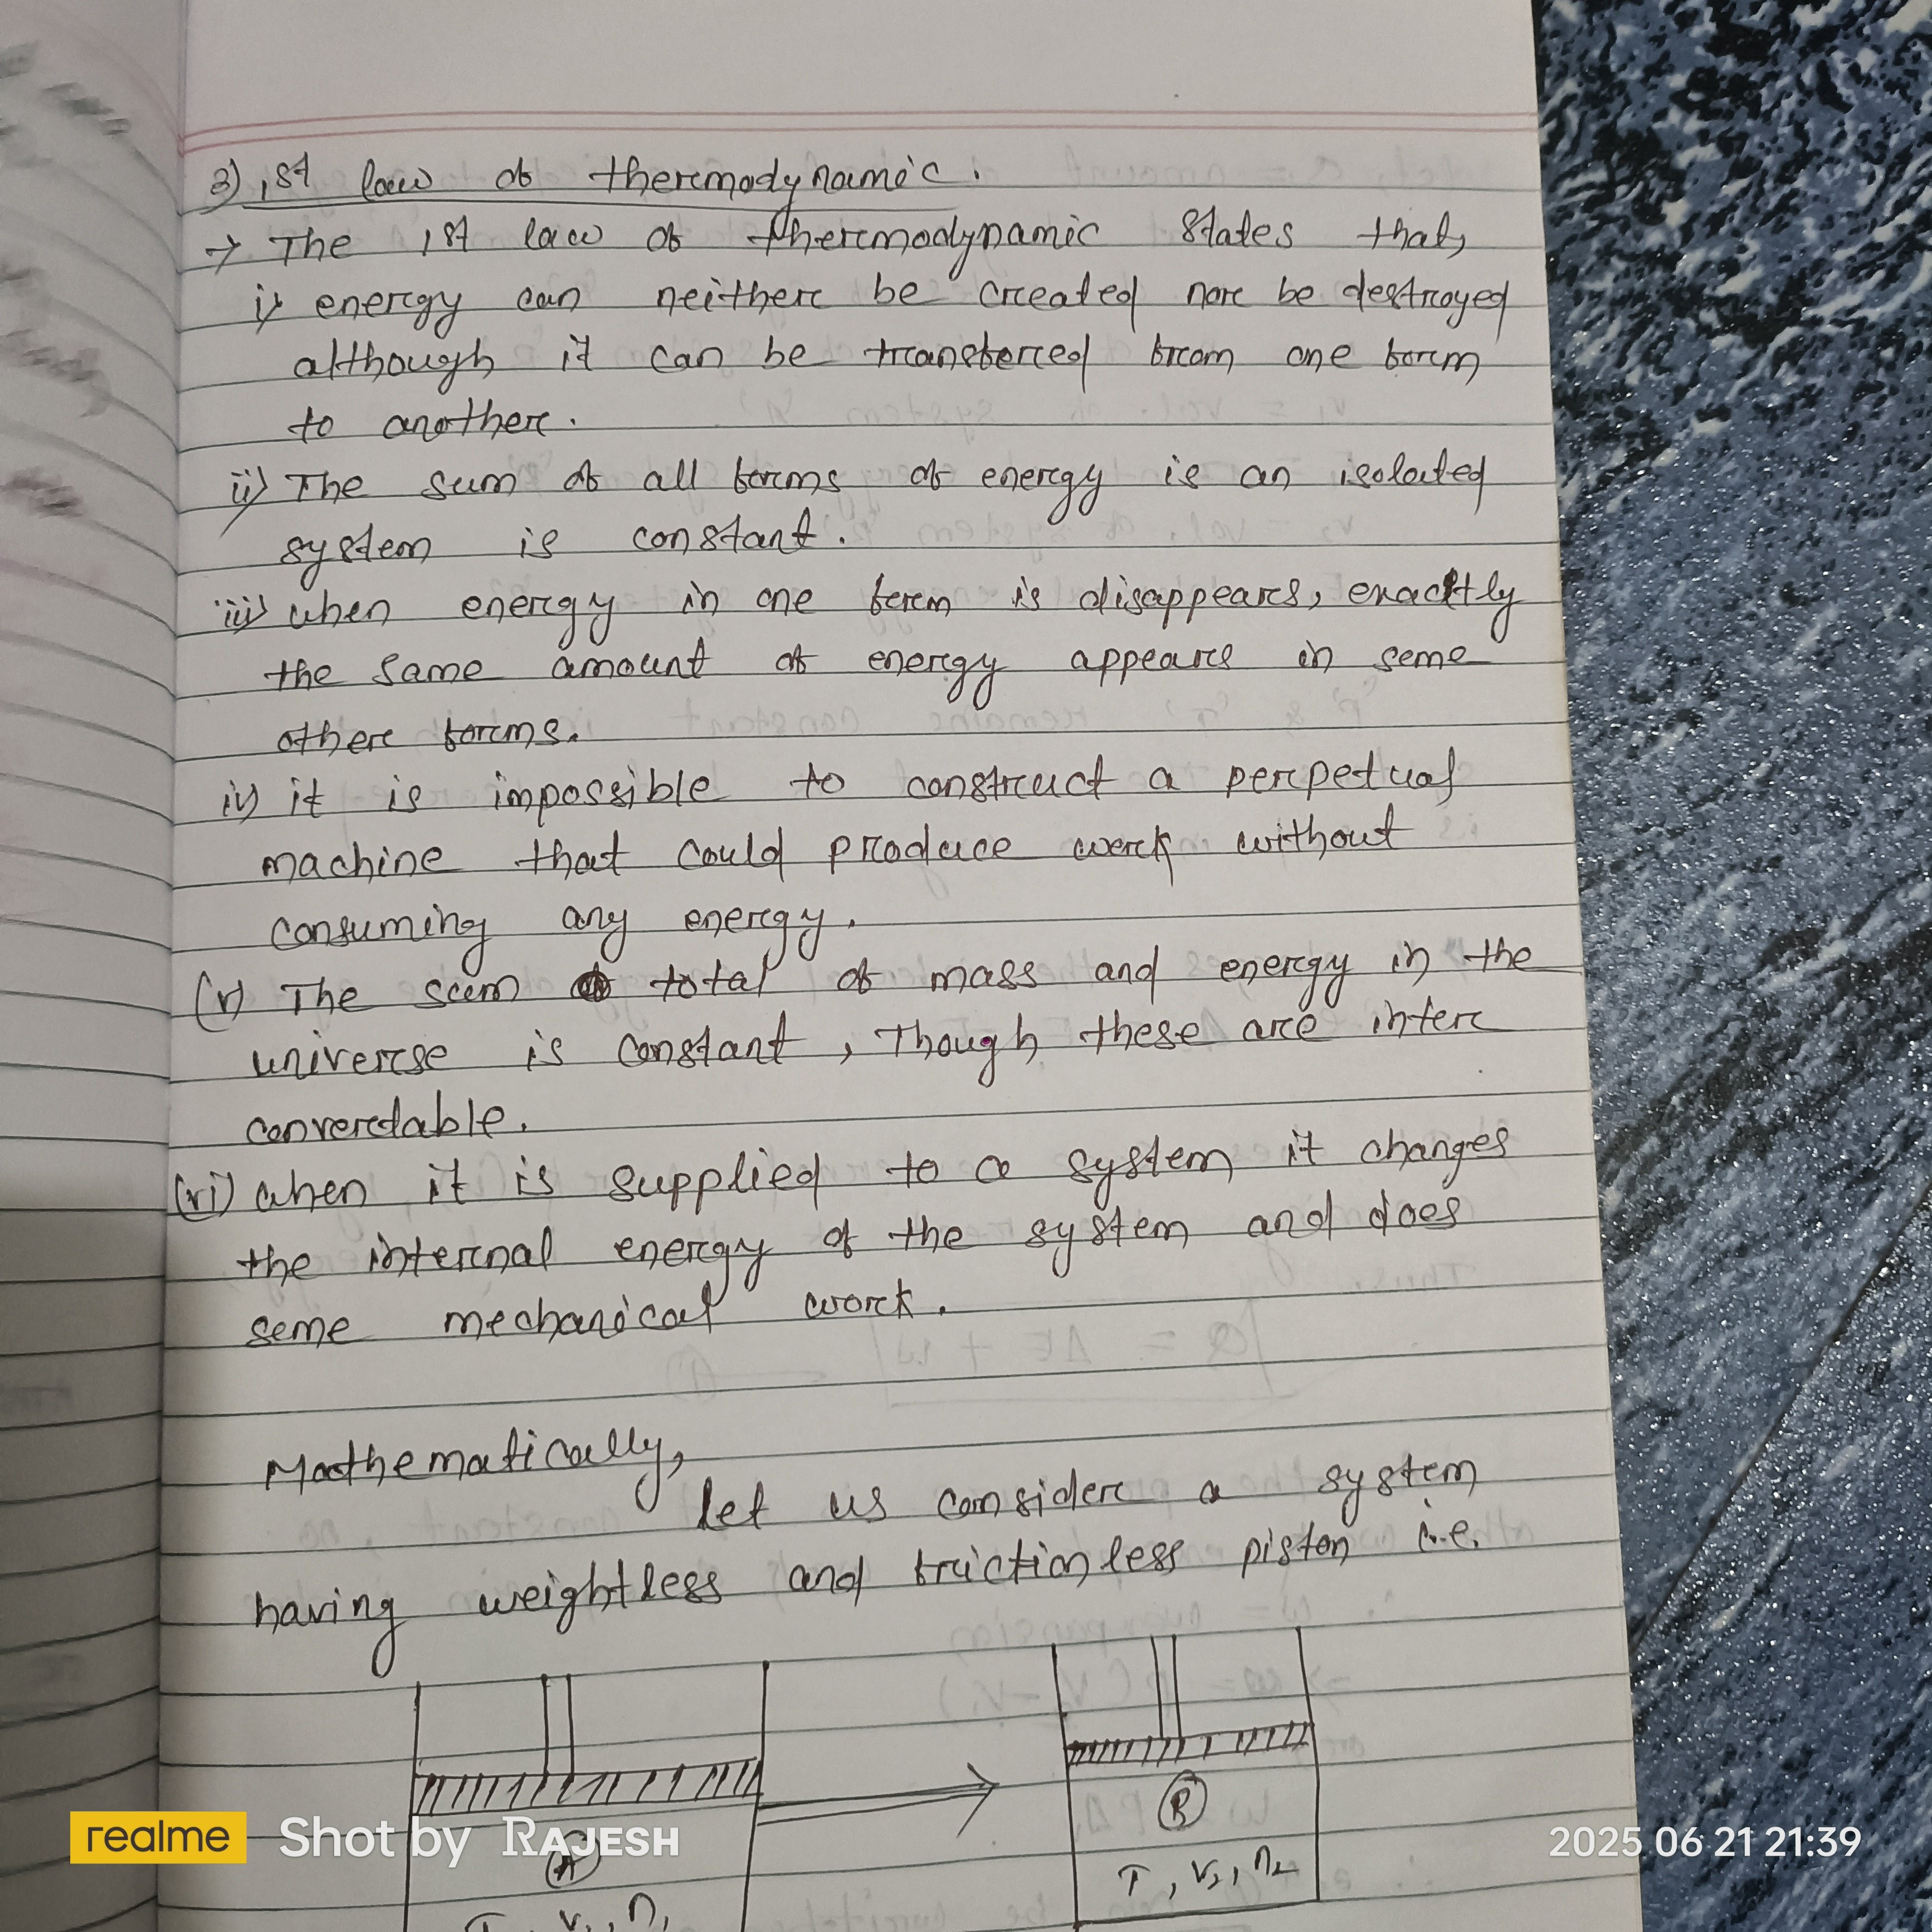 3) 1st law of thermodynamic.
→ The 1st law of thermodynamic states that,
i) energy can neither be created nor be destroyed
although it can be transfered from one form
to another.
ii) The sum of all forms of energy is an isolated
system is constant.
iii) when energy in one form is disappears, exactly
the same amount of energy appears in some
other forms.
iv) it is impossible to construct a perpetual
machine that could produce work without
consuming any energy.
(v) The sum total of mass and energy in the
universe is constant, Though these are inter
converdable.
(vi) when it is supplied to a system it changes
the internal energy of the system and does
some mechanical work.
Mathematically,
let us consider a system
having weightless and frictionless piston i.e.
A
B
T, V2, n2
V1, n1
realme Shot by RAJESH
2025 06 21 21:39